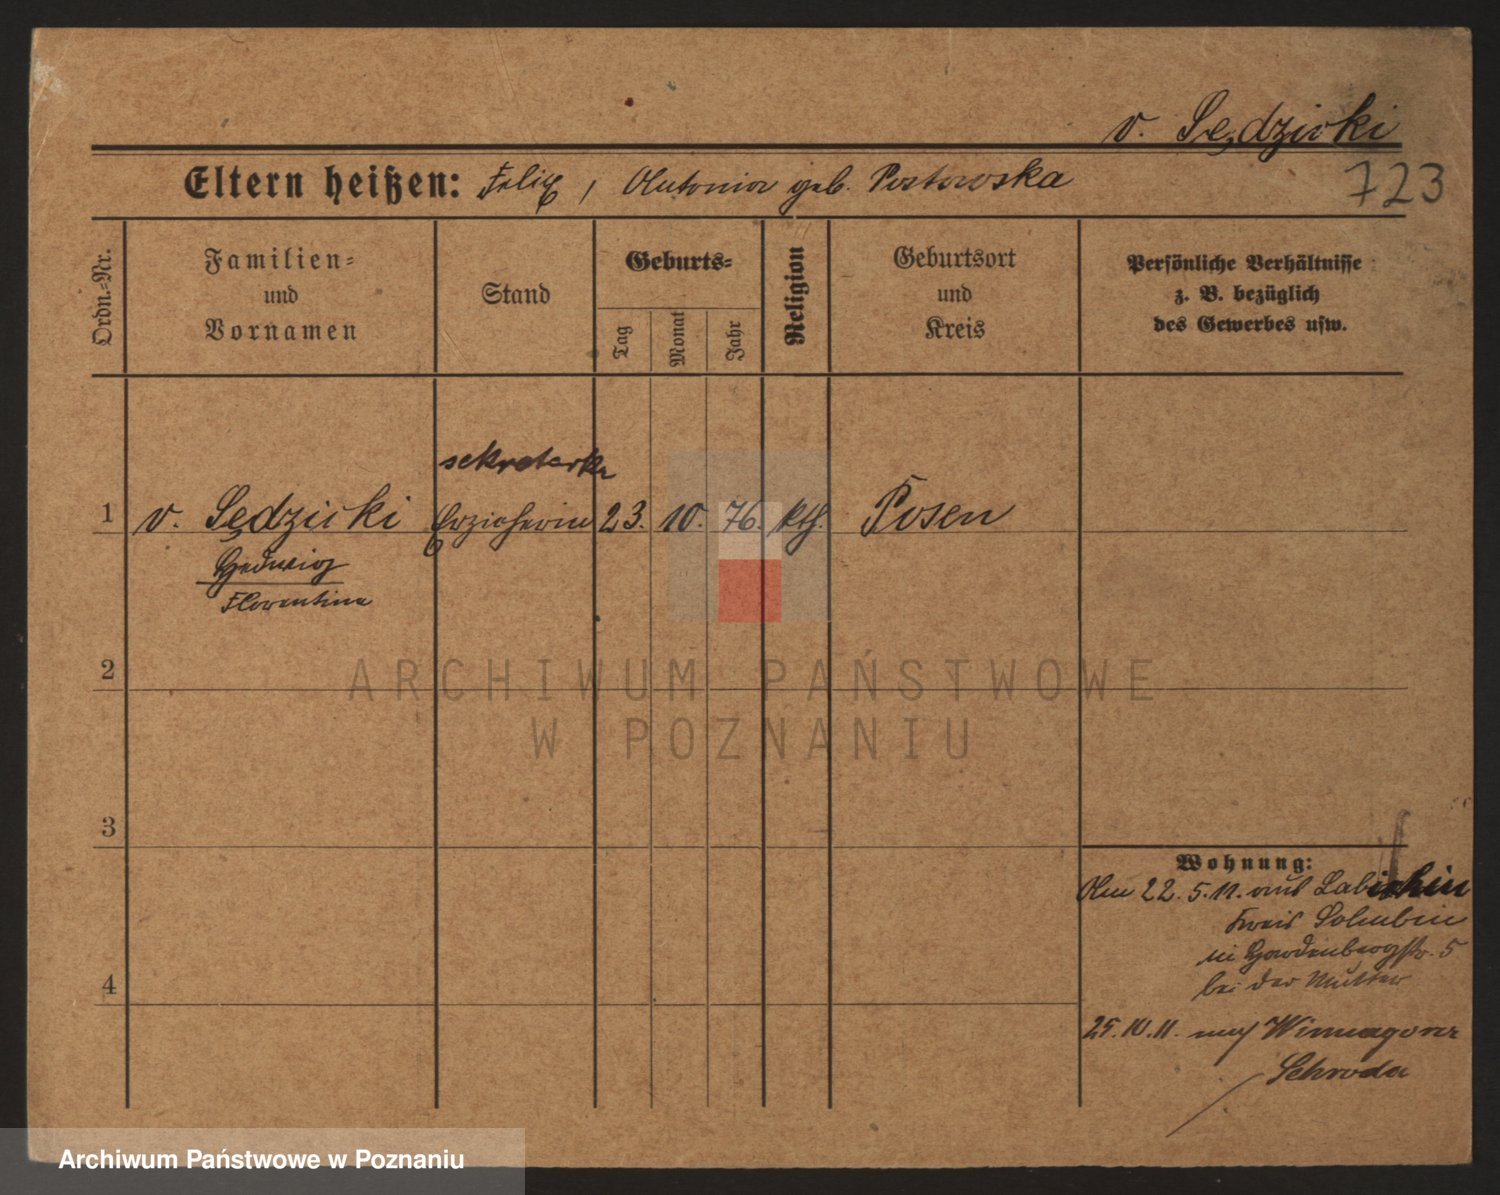 v. Sędzicki
723
Eltern heißen: Felix, Antonia geb. Postowska
Ordn.-Nr.
Familien-
und
Vornamen
Stand
Geburts-
Tag
Monat
Jahr
Religion
Geburtsort
und
Kreis
Persönliche Verhältnisse
z. B. bezüglich
des Gewerbes usw.
sekretarka
1 v. Sędzicki Erzieherin 23. 10. 76. kth. Posen
Hedwig
Florentina
2
ARCHIWUM PAŃSTWOWE
W POZNANIU
3
4
Wohnung:
Am 22. 5. 11. aus Labischin
Kreis Schubin
bei der Mutter
25. 10. 11. nach Winnagora
Schroda
Archiwum Państwowe w Poznaniu